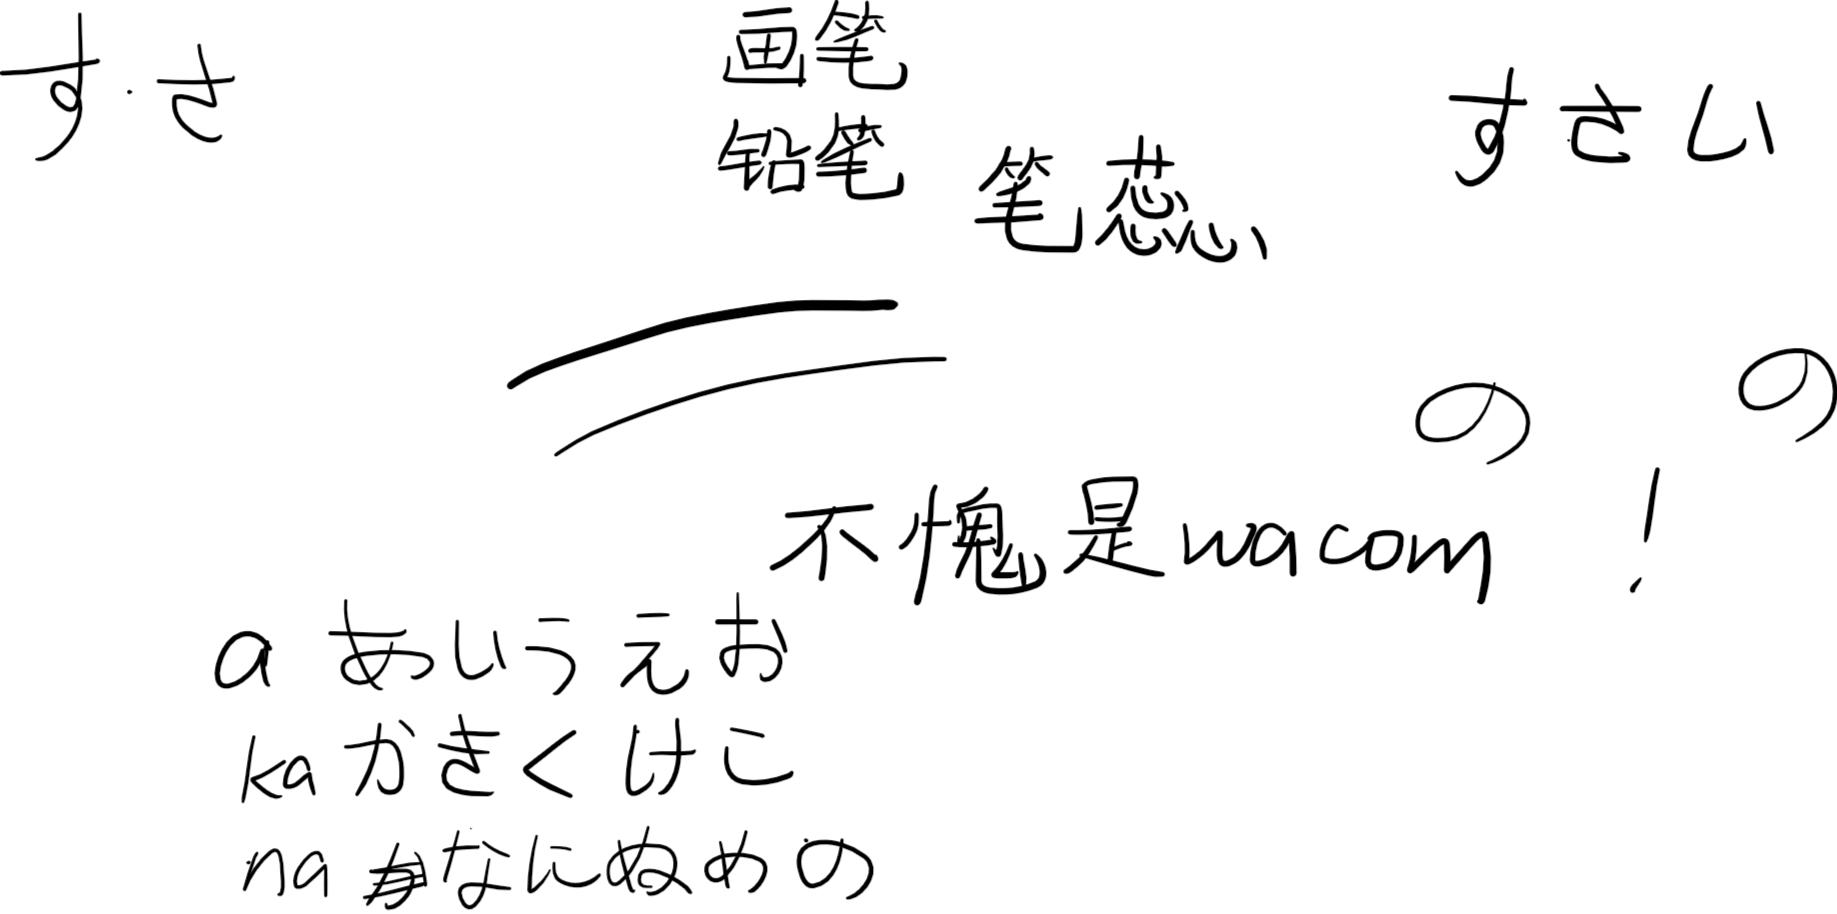 すさ
画笔
铅笔
笔蕊
すさい
の
の
不愧是wacom！
a あいうえお
ka かきくけこ
na なにぬめの